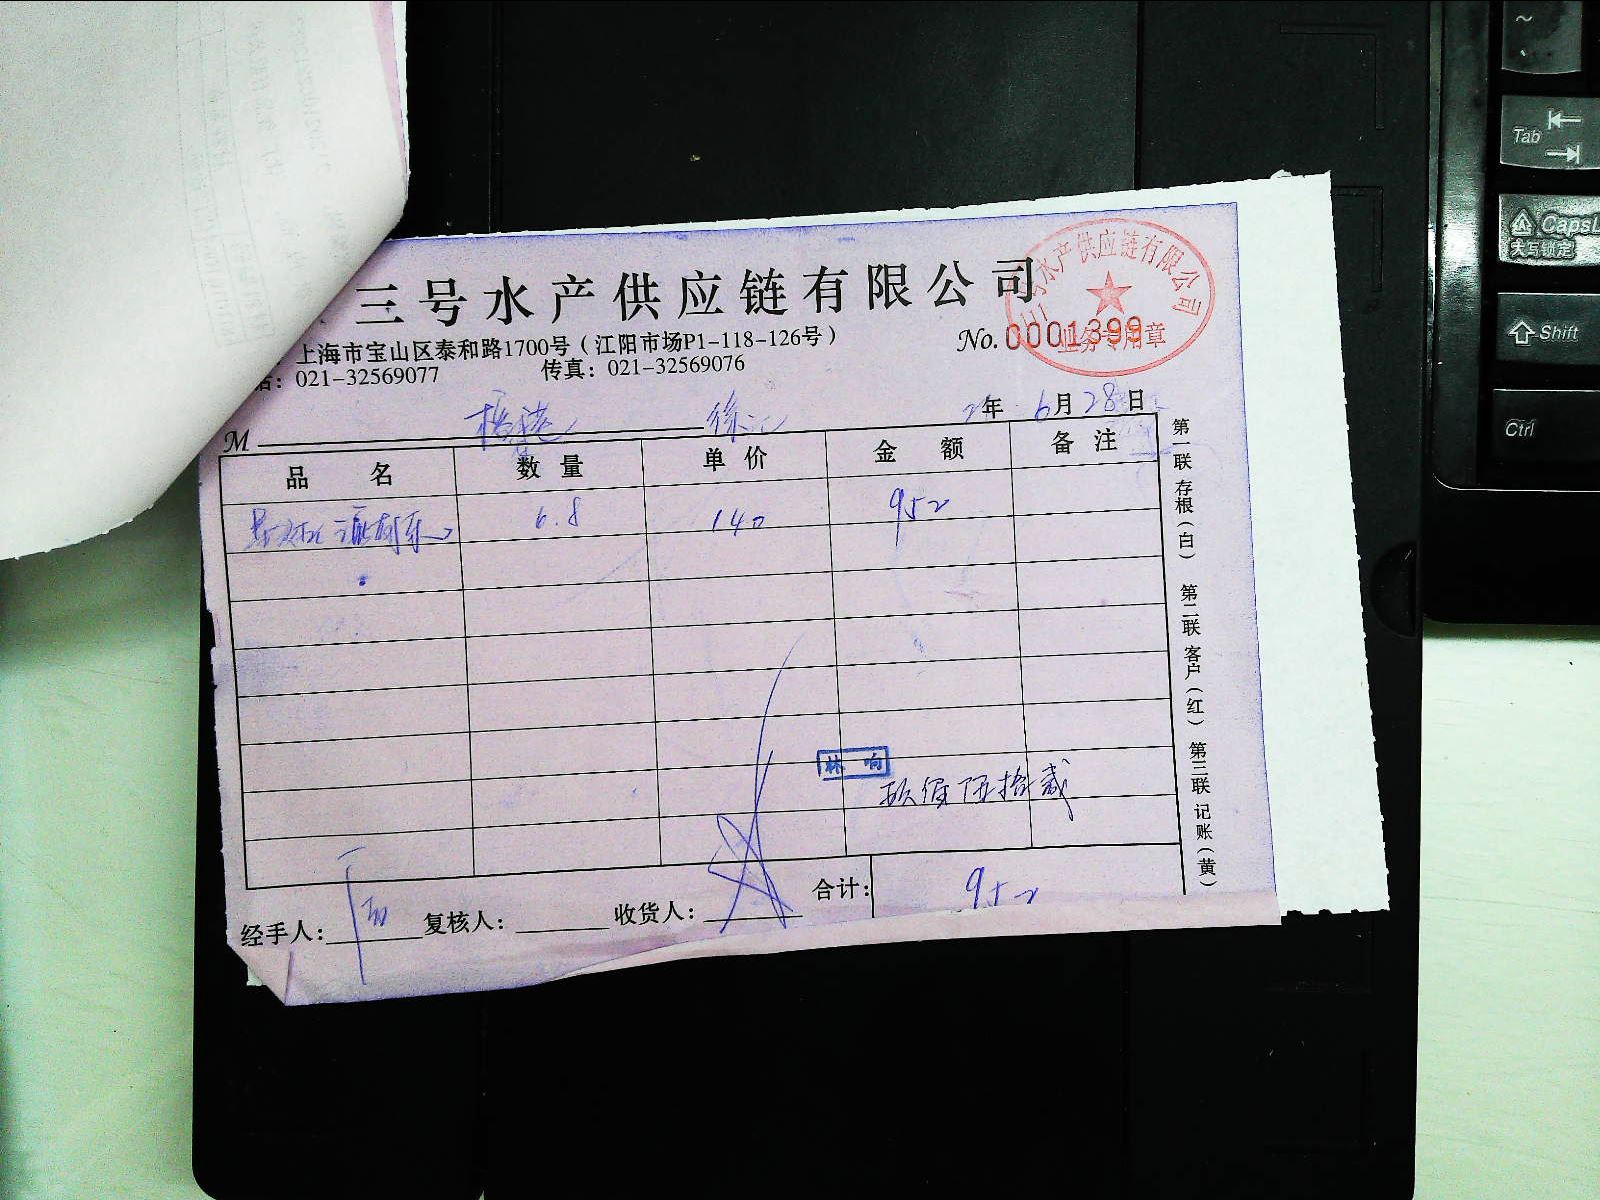 三号水产供应链有限公司
三号水产供应链有限公司
业务专用章
上海市宝山区泰和路1700号（江阳市场P1-118-126号）
No. 0001399
话：021-32569077 传真：021-32569076
2年 6月28日
M 徐汇
品 名 数 量 单 价 金 额 备 注
6.8 140 952
林 响
玖佰伍拾贰
合计：952
经手人： 复核人： 收货人：
第一联 存根（白） 第二联 客户（红） 第三联 记账（黄）
~
Tab
CapsL
大写锁定
Shift
Ctrl